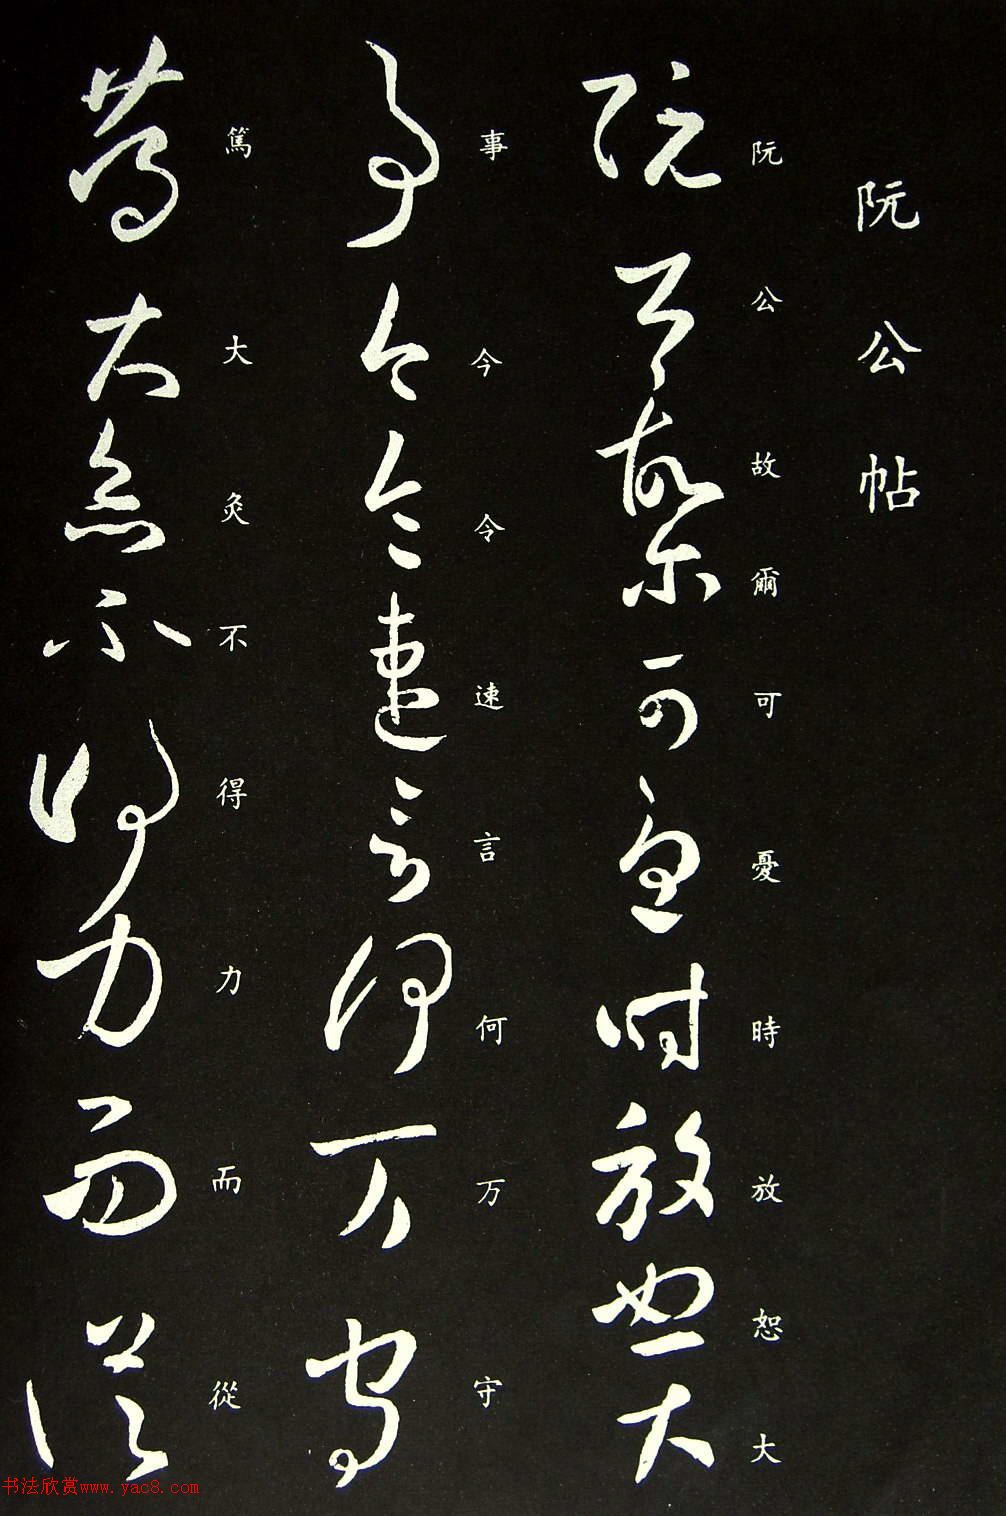 阮公帖
阮公故爾可憂時放恕大
事今令速言何万守
篤大灸不得力而從
书法欣赏www.yac8.com